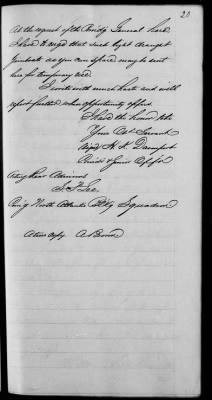 20
At the request of the Comdg General here
I have to urge that such light draught
gunboats as you can spare may be sent
here for temporary use.
I write with much haste and will
report further when opportunity offers.
I have the honor &c
Your Obt Servant
Signed H. K. Davenport
Comdr & Senior Officer
Acting Rear Admiral
S. P. Lee
Comdg North Atlantic Bldg Squadron
A true copy